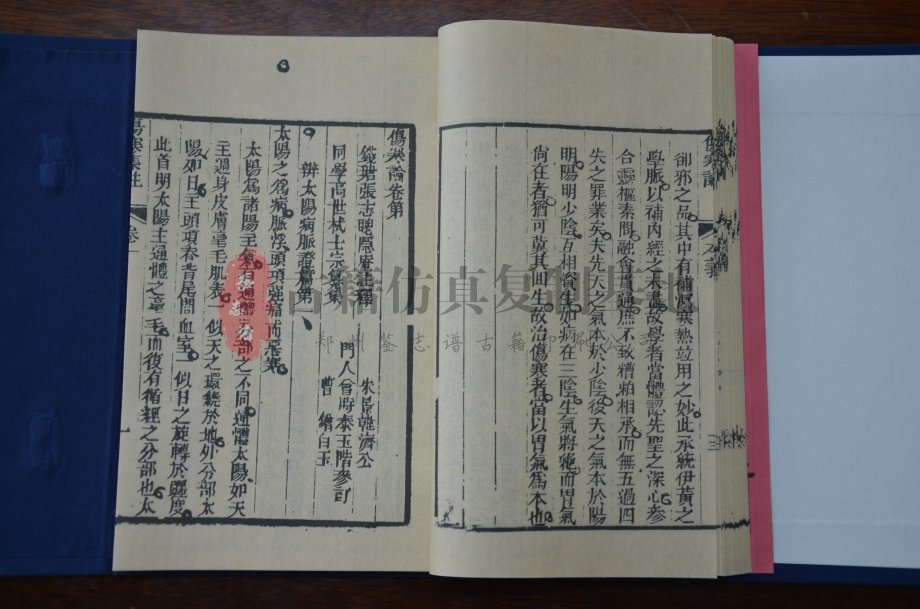 卻邪之品其中有補瀉寒熱竝用之妙此承統伊黃之
學脈以補內經之未盡故學者當體認先聖之深心參
合靈樞素問融會貫通庶不致糟粕相承而無五過四
失之罪業矣夫先天之氣本於少陰後天之氣本於陽
明陽明少陰互相資生如病在三陰生氣將絕而胃氣
尙在者猶可冀其回生故治傷寒者當以胃氣爲本也
傷寒論卷第
錢塘張志聰隱庵註釋
同學高世栻士宗纂集
朱景韓濟公
門人曾時泰玉階參訂
曹 繪白玉
辨太陽病脈證篇第一
太陽之爲病脈浮頭項强痛而惡寒
太陽爲諸陽主氣有通體分部之不同通體太陽如天
主週身皮膚毫毛肌表一似天之環繞於地外分部太
陽如日主頭項脊背尾閭血室一似日之旋轉於躔度
此首明太陽主通體之毫毛而復有循經之分部也太
傷寒集註
卷一
古籍仿真复制基地
郑州鉴志谱古籍印刷公司